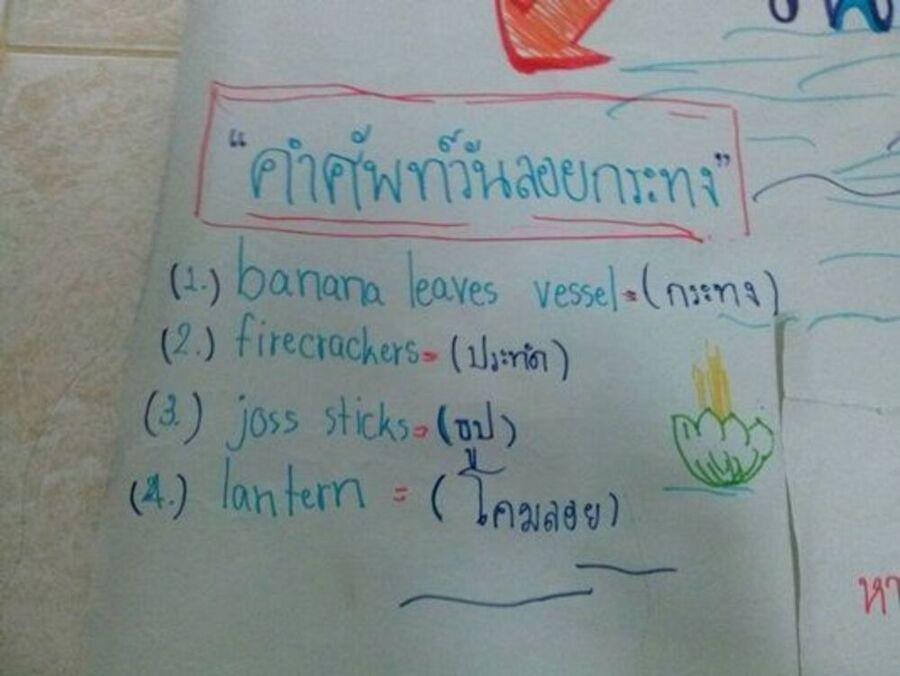 "คำศัพท์วันลอยกระทง"
(1.) banana leaves vessel = (กระทง)
(2.) firecrackers = (ประทัด)
(3.) joss sticks = (ธูป)
(4.) lantern = (โคมลอย)
หา